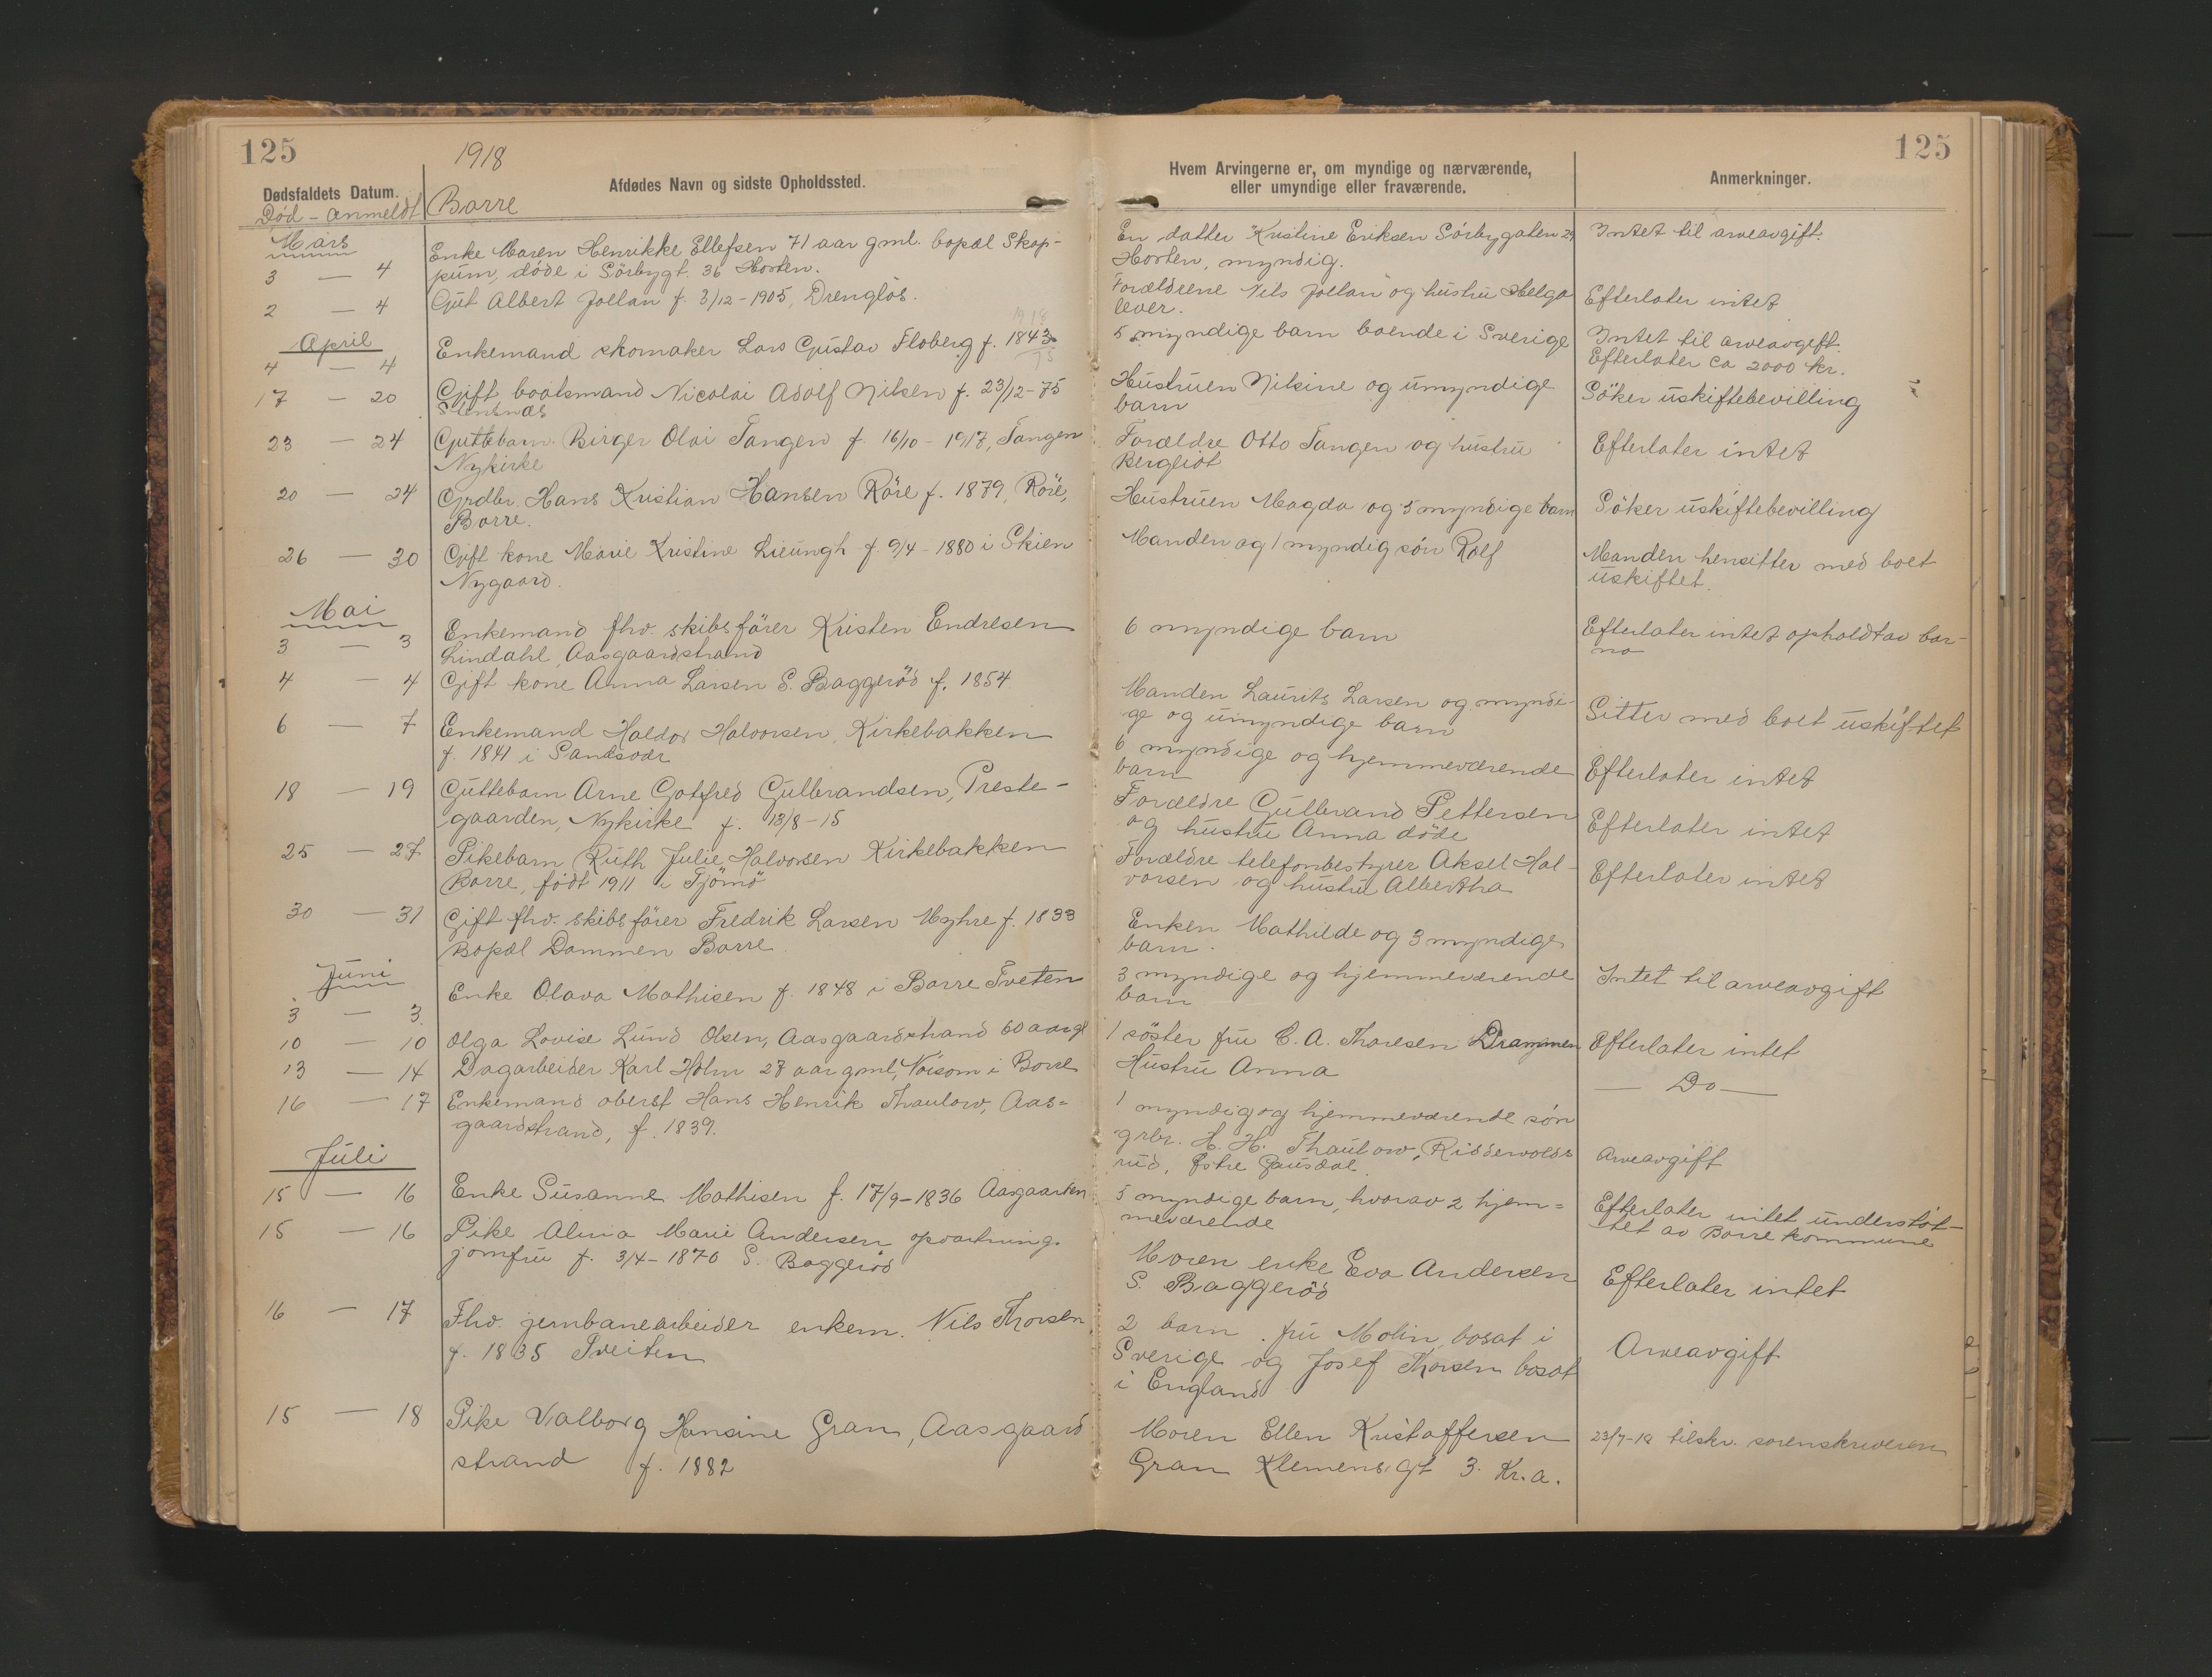 125
1918
125
Dødsfaldets Datum.
Afdødes Navn og sidste Opholdssted.
Hvem Arvingerne er, om myndige og nærværende,
eller umyndige eller fraværende.
Anmerkninger.
Död - anmeldt
Borre
Mars
3 — 4 Enke Maren Henrikke Ellefsen 71 aar gml. bopæl Skop-
pum, døde i Sörbygt. 36 Horten.
En datter Kristine Eriksen Sörbygaten 29
Horten, myndig.
Intet til arveavgift.
2 — 4 Gut Albert Jollan f. 3/12-1905, Drenglös.
Forældrene Nils Jollan og hustru Helga
lever.
Efterlater intet
April
1918
4 — 4 Enkemand skomaker Lars Gustav Floberg f. 1843
75
5 myndige barn boende i Sverige
Intet til arveavgift.
Efterlater ca 2000 kr.
17 — 20 Gift baatsmand Nicolai Adolf Nilsen f. 23/12-75
Stensnæs
Hustruen Nilsine og umyndige
barn
Söker uskiftebevilling
23 — 24 Guttebarn Birger Olai Tangen f. 16/10-1917, Tangen
Nykirke
Forældre Otto Tangen og hustru
Bergliot
Efterlater intet
20 — 24 Grdbr. Hans Kristian Hansen Röre f. 1879, Röre,
Borre.
Hustruen Magda og 5 myndige barn
Söker uskiftebevilling
26 — 30 Gift kone Marie Kristine Lieungh f. 9/4-1880 i Skien
Nygaard.
Manden og 1 myndig sön Rolf
Manden hensitter med boet
uskiftet.
Mai
3 — 3 Enkemand fhv. skibsförer Kristen Endresen
Lindahl, Aasgaardstrand
6 myndige barn
Efterlater intet opholdt av bar-
na
4 — 4 Gift kone Anna Larsen S. Baggeröd f. 1854
Manden Laurits Larsen og myndi-
ge og umyndige barn
Sitter med boet uskiftet
6 — 7 Enkemand Haldor Halvorsen, Kirkebakken
f. 1841 i Sandsvær
6 myndige og hjemmeværende
barn
Efterlater intet
18 — 19 Guttebarn Arne Gotfred Gulbrandsen, Preste-
gaarden, Nykirke f. 13/8-15
Forældre Gulbrand Pettersen
og hustru Anna döde
Efterlater intet
25 — 27 Pikebarn Ruth Julie Halvorsen Kirkebakken
Borre, födt 1911 i Tjömö
Forældre telefonbestyrer Aksel Hal-
vorsen og hustru Albertha
Efterlater intet
30 — 31 Gift fhv. skibsförer Fredrik Larsen Myhre f. 1833
Bopæl Dammen Borre
Enken Mathilde og 3 myndige
barn.
Juni
3 — 3. Enke Olava Mathisen f. 1848 i Borre Tveten
3 myndige og hjemmeværende
barn
Intet til arveavgift
10 — 10 Olga Lovise Lund Olsen, Aasgaardstrand 60 aar gl
1 söster fru C. A. Thoresen Drammen
Efterlater intet
13 — 14 Dagarbeider Karl Holm 27 aar gml, Noisom i Borre
Hustru Anna
— Do —
16 — 17 Enkemand oberst Hans Henrik Thaulow, Aas=
gaardstrand, f. 1839.
1 myndig og hjemmeværende sön
grbr. H. H. Thaulow, Ridderwolds
rud, Östre Gausdal.
Arveavgift
Juli
15 — 16 Enke Susanne Mathisen f. 17/9-1836 Aasgaarden
5 myndige barn, hvorav 2 hjem=
meværende
Efterlater intet understöt-
tet av Borre kommune
15 — 16 Pike Alma Marie Andersen opvartning.
jomfru f. 3/4-1870 S. Baggeröd
Moren enke Eva Andersen
S. Baggeröd
Efterlater intet
16 — 17 Fhv. jernbanearbeider enkem. Nils Thorsen
f. 1835 Tveiten
2 barn. fru Molin, bosat i
Sverige og Josef Thorsen bosat
i England
Arveavgift
15 — 18 Pike Valborg Hansine Gran, Aasgaard
strand f. 1882
Moren Ellen Kristoffersen
Gran Klemensgt 3. Kr.a.
23/7-18 tilskr. sorenskriveren